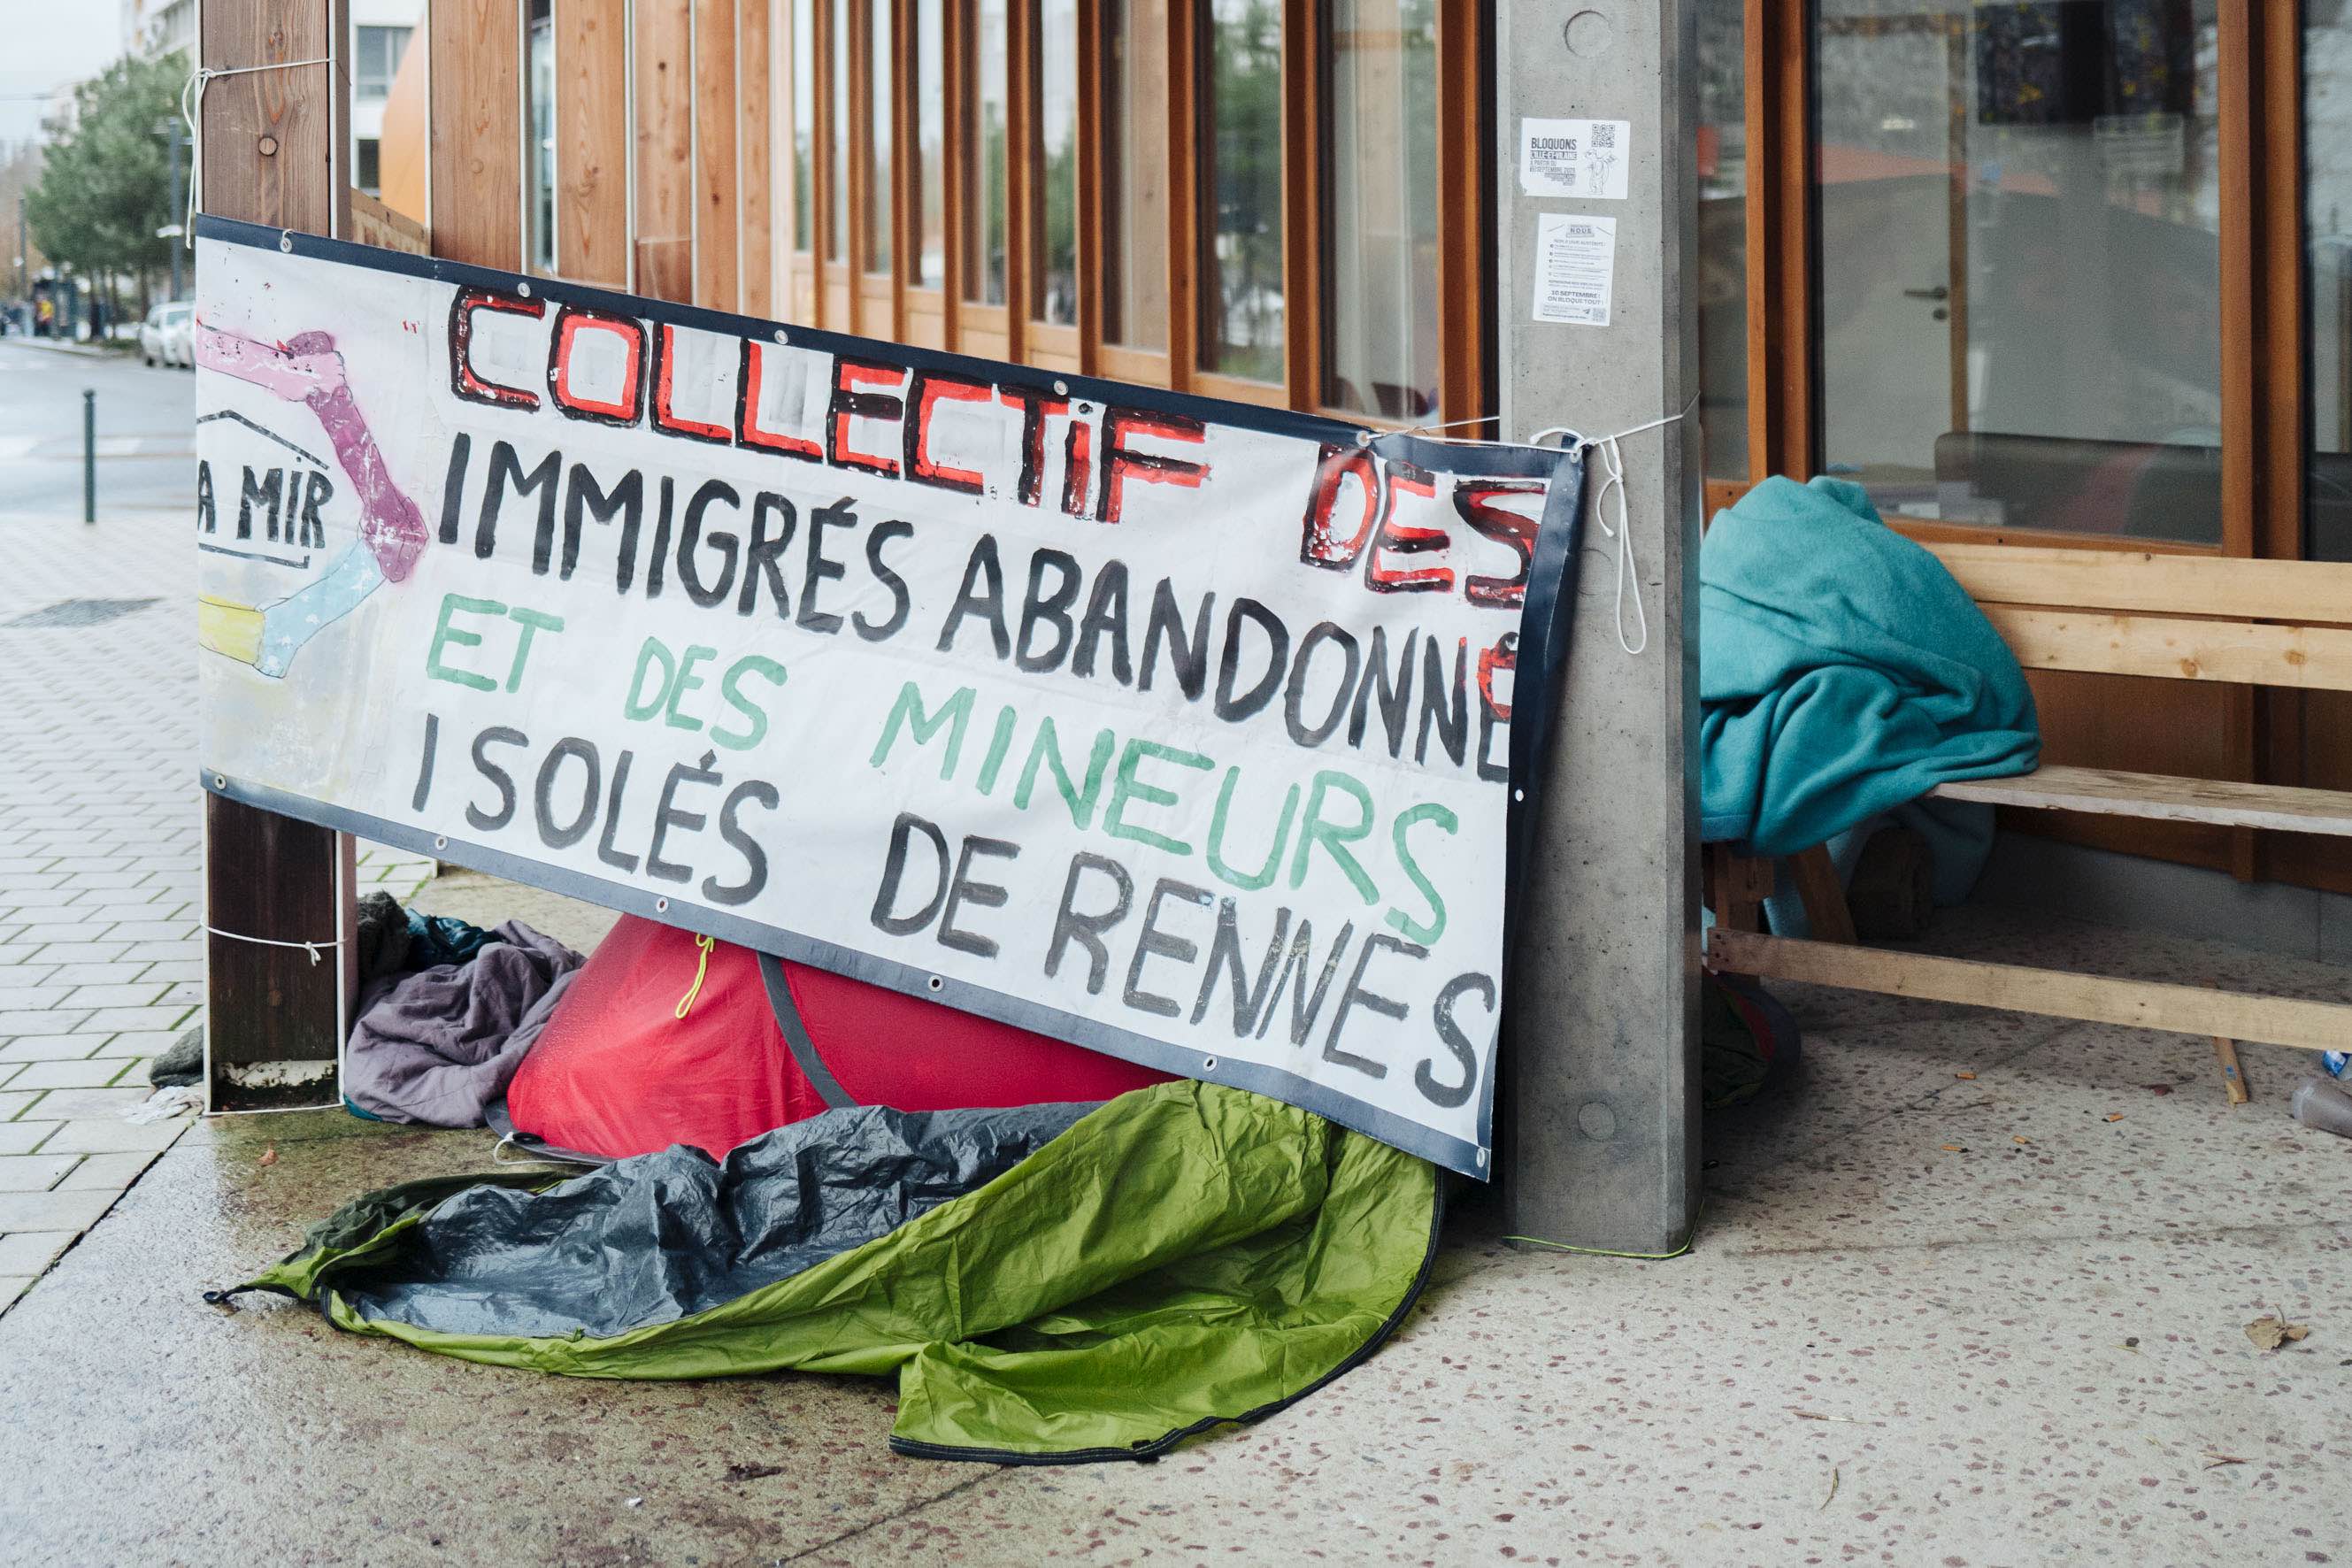 A MIR
COLLECTIF DES
IMMIGRÉS ABANDONNÉ
ET DES MINEURS
ISOLÉS DE RENNES
BLOQUONS
L'ILLE-ET-VILAINE
À PARTIR DU
NOUS
10 SEPTEMBRE !
ON BLOQUE TOUT !